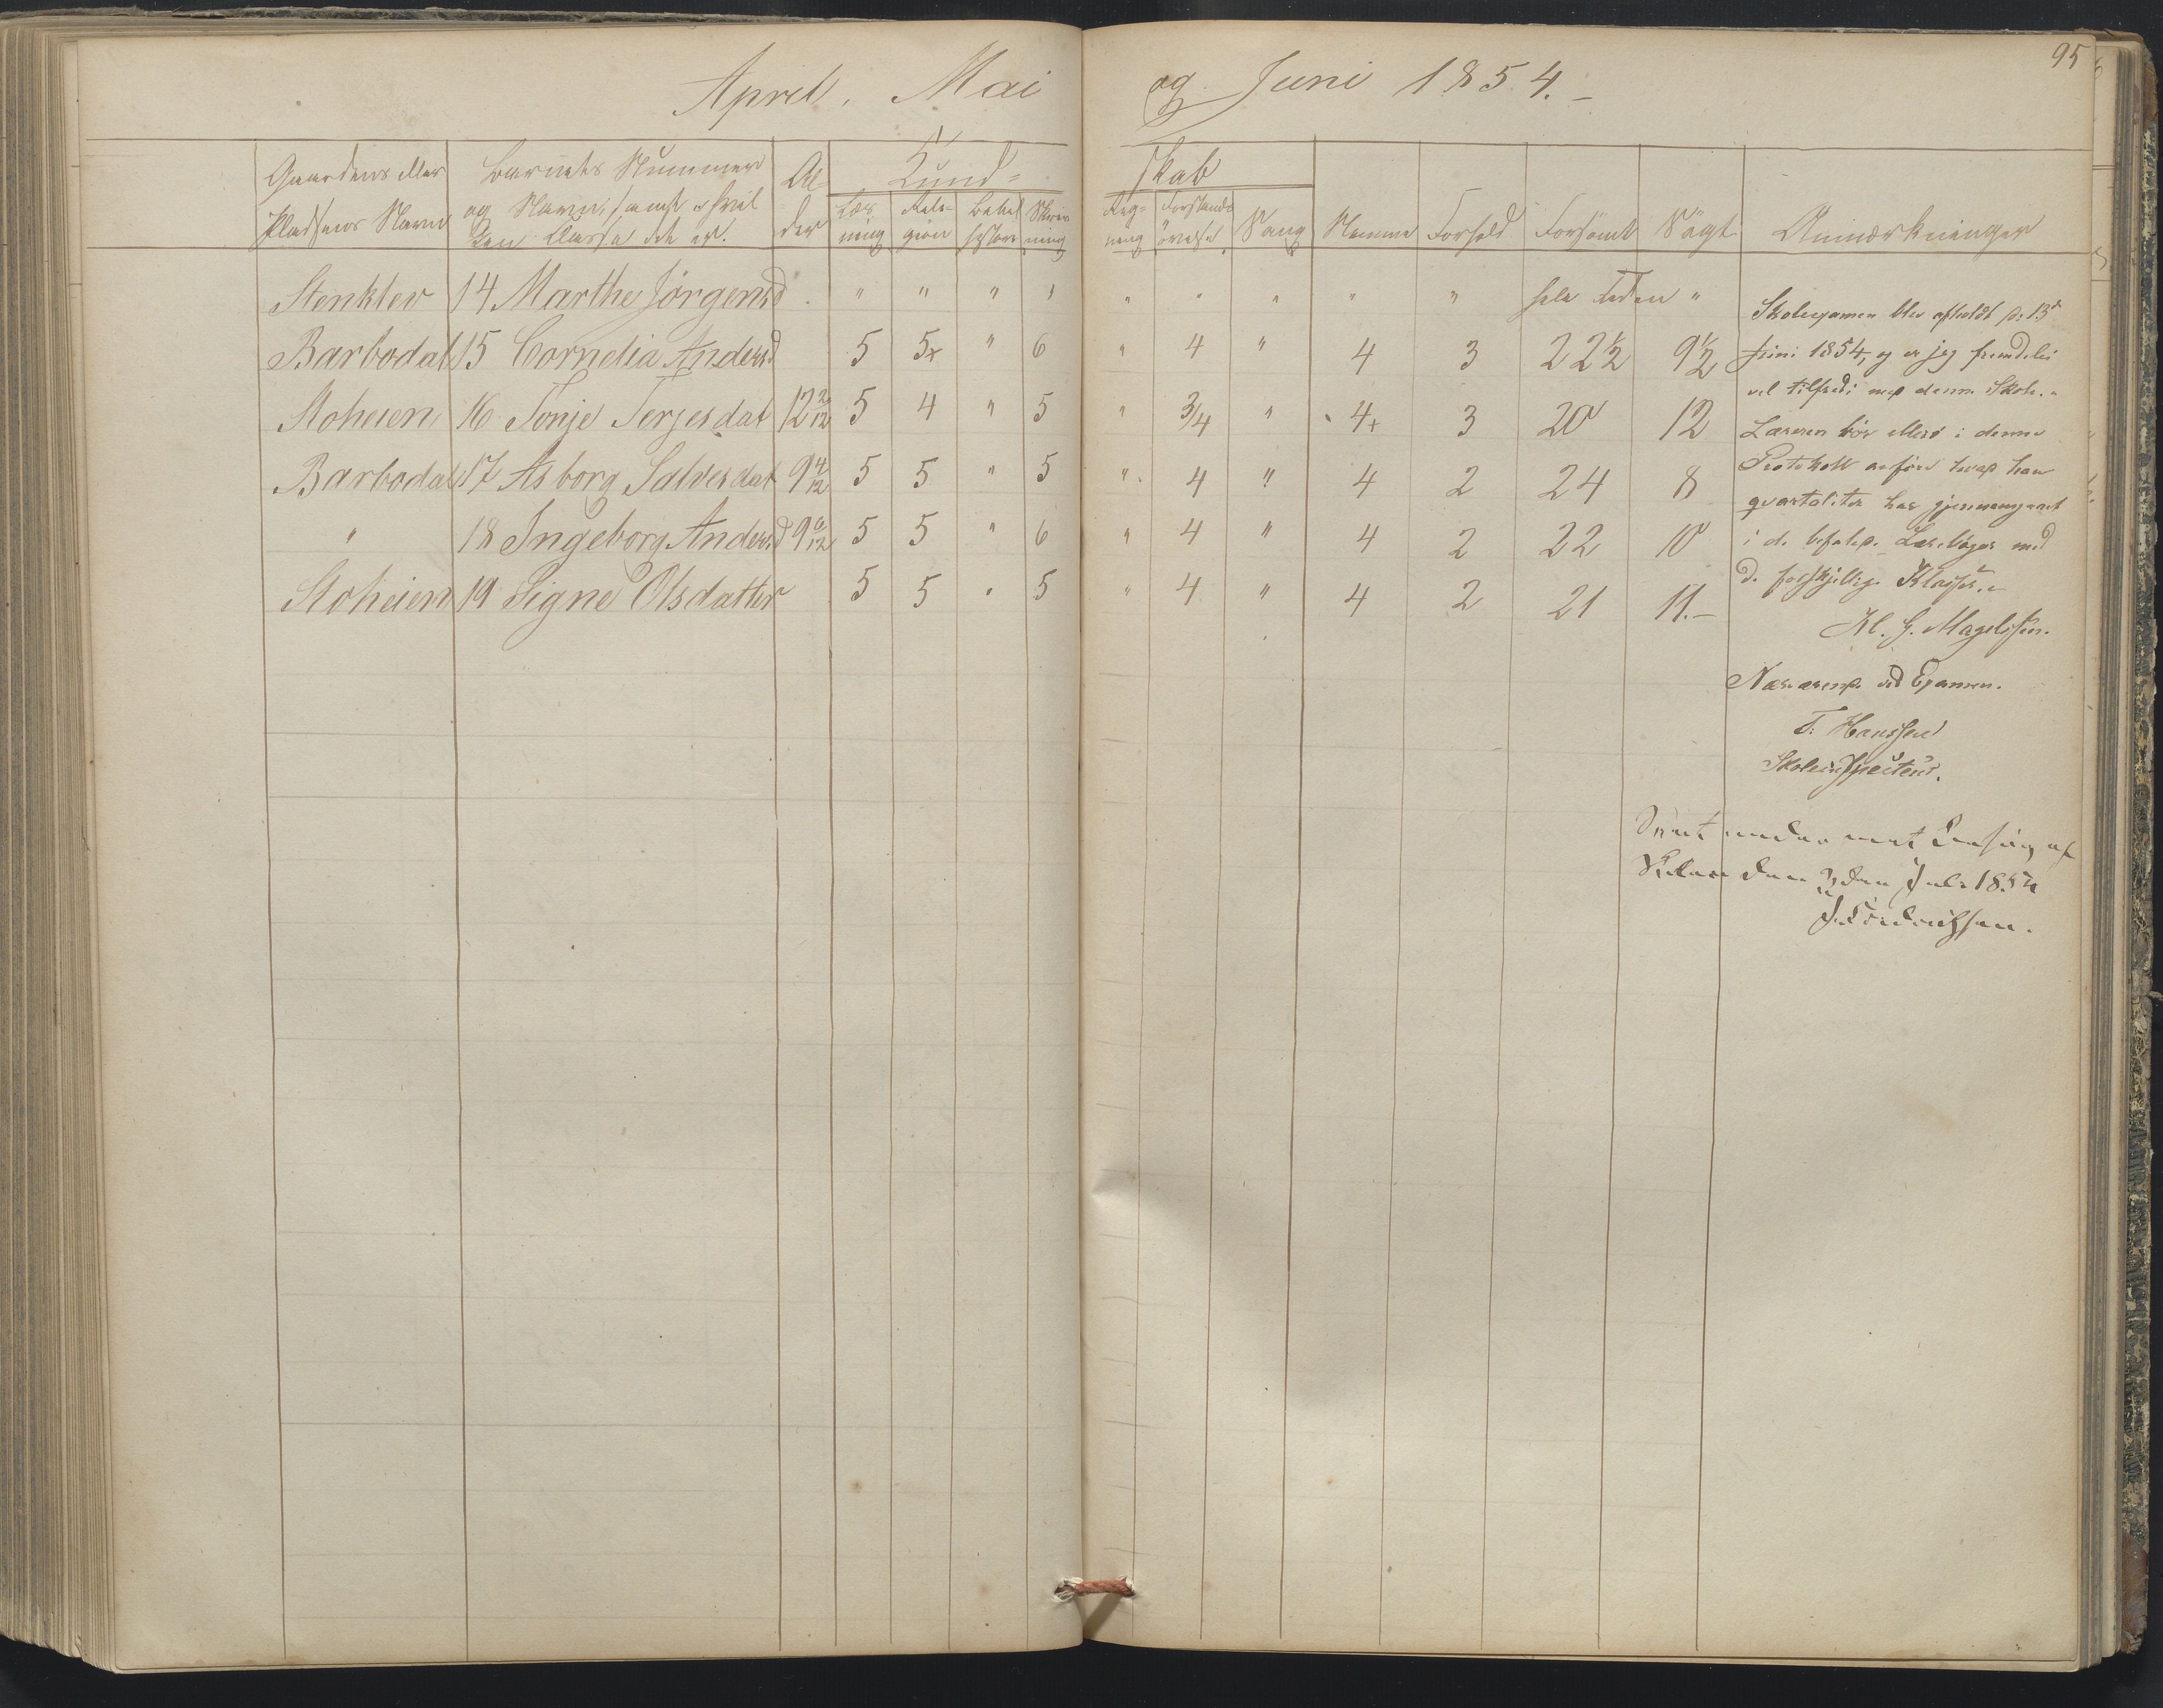 95
April, Mai og Juni 1854.
Gaardens eller Pladsens Navn | Barnets Nummer og Navn, samt i hvilken Classe det er. | Alder | Kundskab | Læsning | Religion | Bibelhistorie | Skrivning | Regning | Forstandsøvelse | Sang | Nemme | Forhold | Forsømt | Søgt | Anmærkninger
Stenklev 14 Marthe Jørgensd " " " " " " " " " hele Tiden "
Barbodal 15 Cornelia Andersd 5 5+ " 6 " 4 " 4 3 22½ 9½
Stoheien 16 Tonje Terjesdat 12 2/12 5 4 " 5 " 3/4 " 4+ 3 20 12
Barbodal 17 Asborg Salvesdat 9 4/12 5 5 " 5 " 4 " 4 2 24 8
" 18 Ingeborg Andersd 9 6/12 5 5 " 6 " 4 " 4 2 22 10
Stoheien 19 Signe Olsdatter 5 5 " 5 " 4 " 4 2 21 11.–
Skoleexamen blev afholdt d: 13d
Juni 1854, og er jeg fremdeles
vel tilfreds med denne Skole.
Læreren bør ellers i denne
Protokoll anføre hvad han
qvartaliter har gjennemgaaet
i de befalede Læsebøger med
de forskjellige Klasser.
Kl. G. Magelssen.
Nærværende ved Examen.
T. Hanssen
Skoleinspecteur.
Seet under mit Besøg af
Skolen den 3den Juli 1854